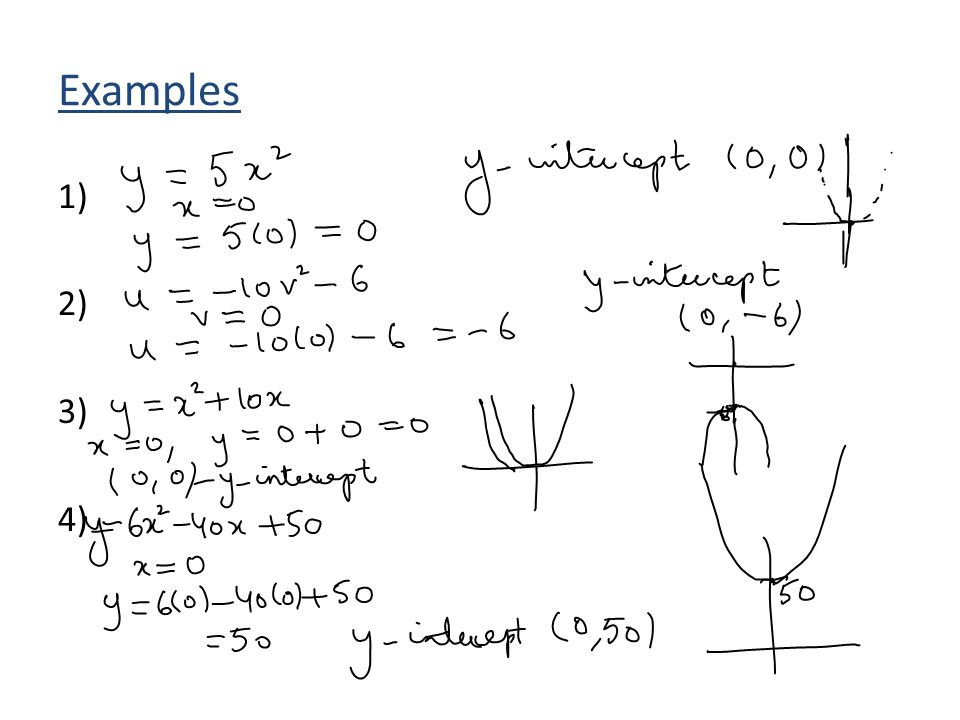 Examples
1) y = 5x²
x = 0
y = 5(0) = 0
y-intercept (0,0)
2) u = -10v² - 6
v = 0
u = -10(0) - 6 = -6
y-intercept
(0, -6)
-6
3) y = x² + 10x
x = 0, y = 0 + 0 = 0
(0, 0) - y-intercept
4) y = 6x² - 40x + 50
x = 0
y = 6(0) - 40(0) + 50
= 50
y-intercept (0,50)
50